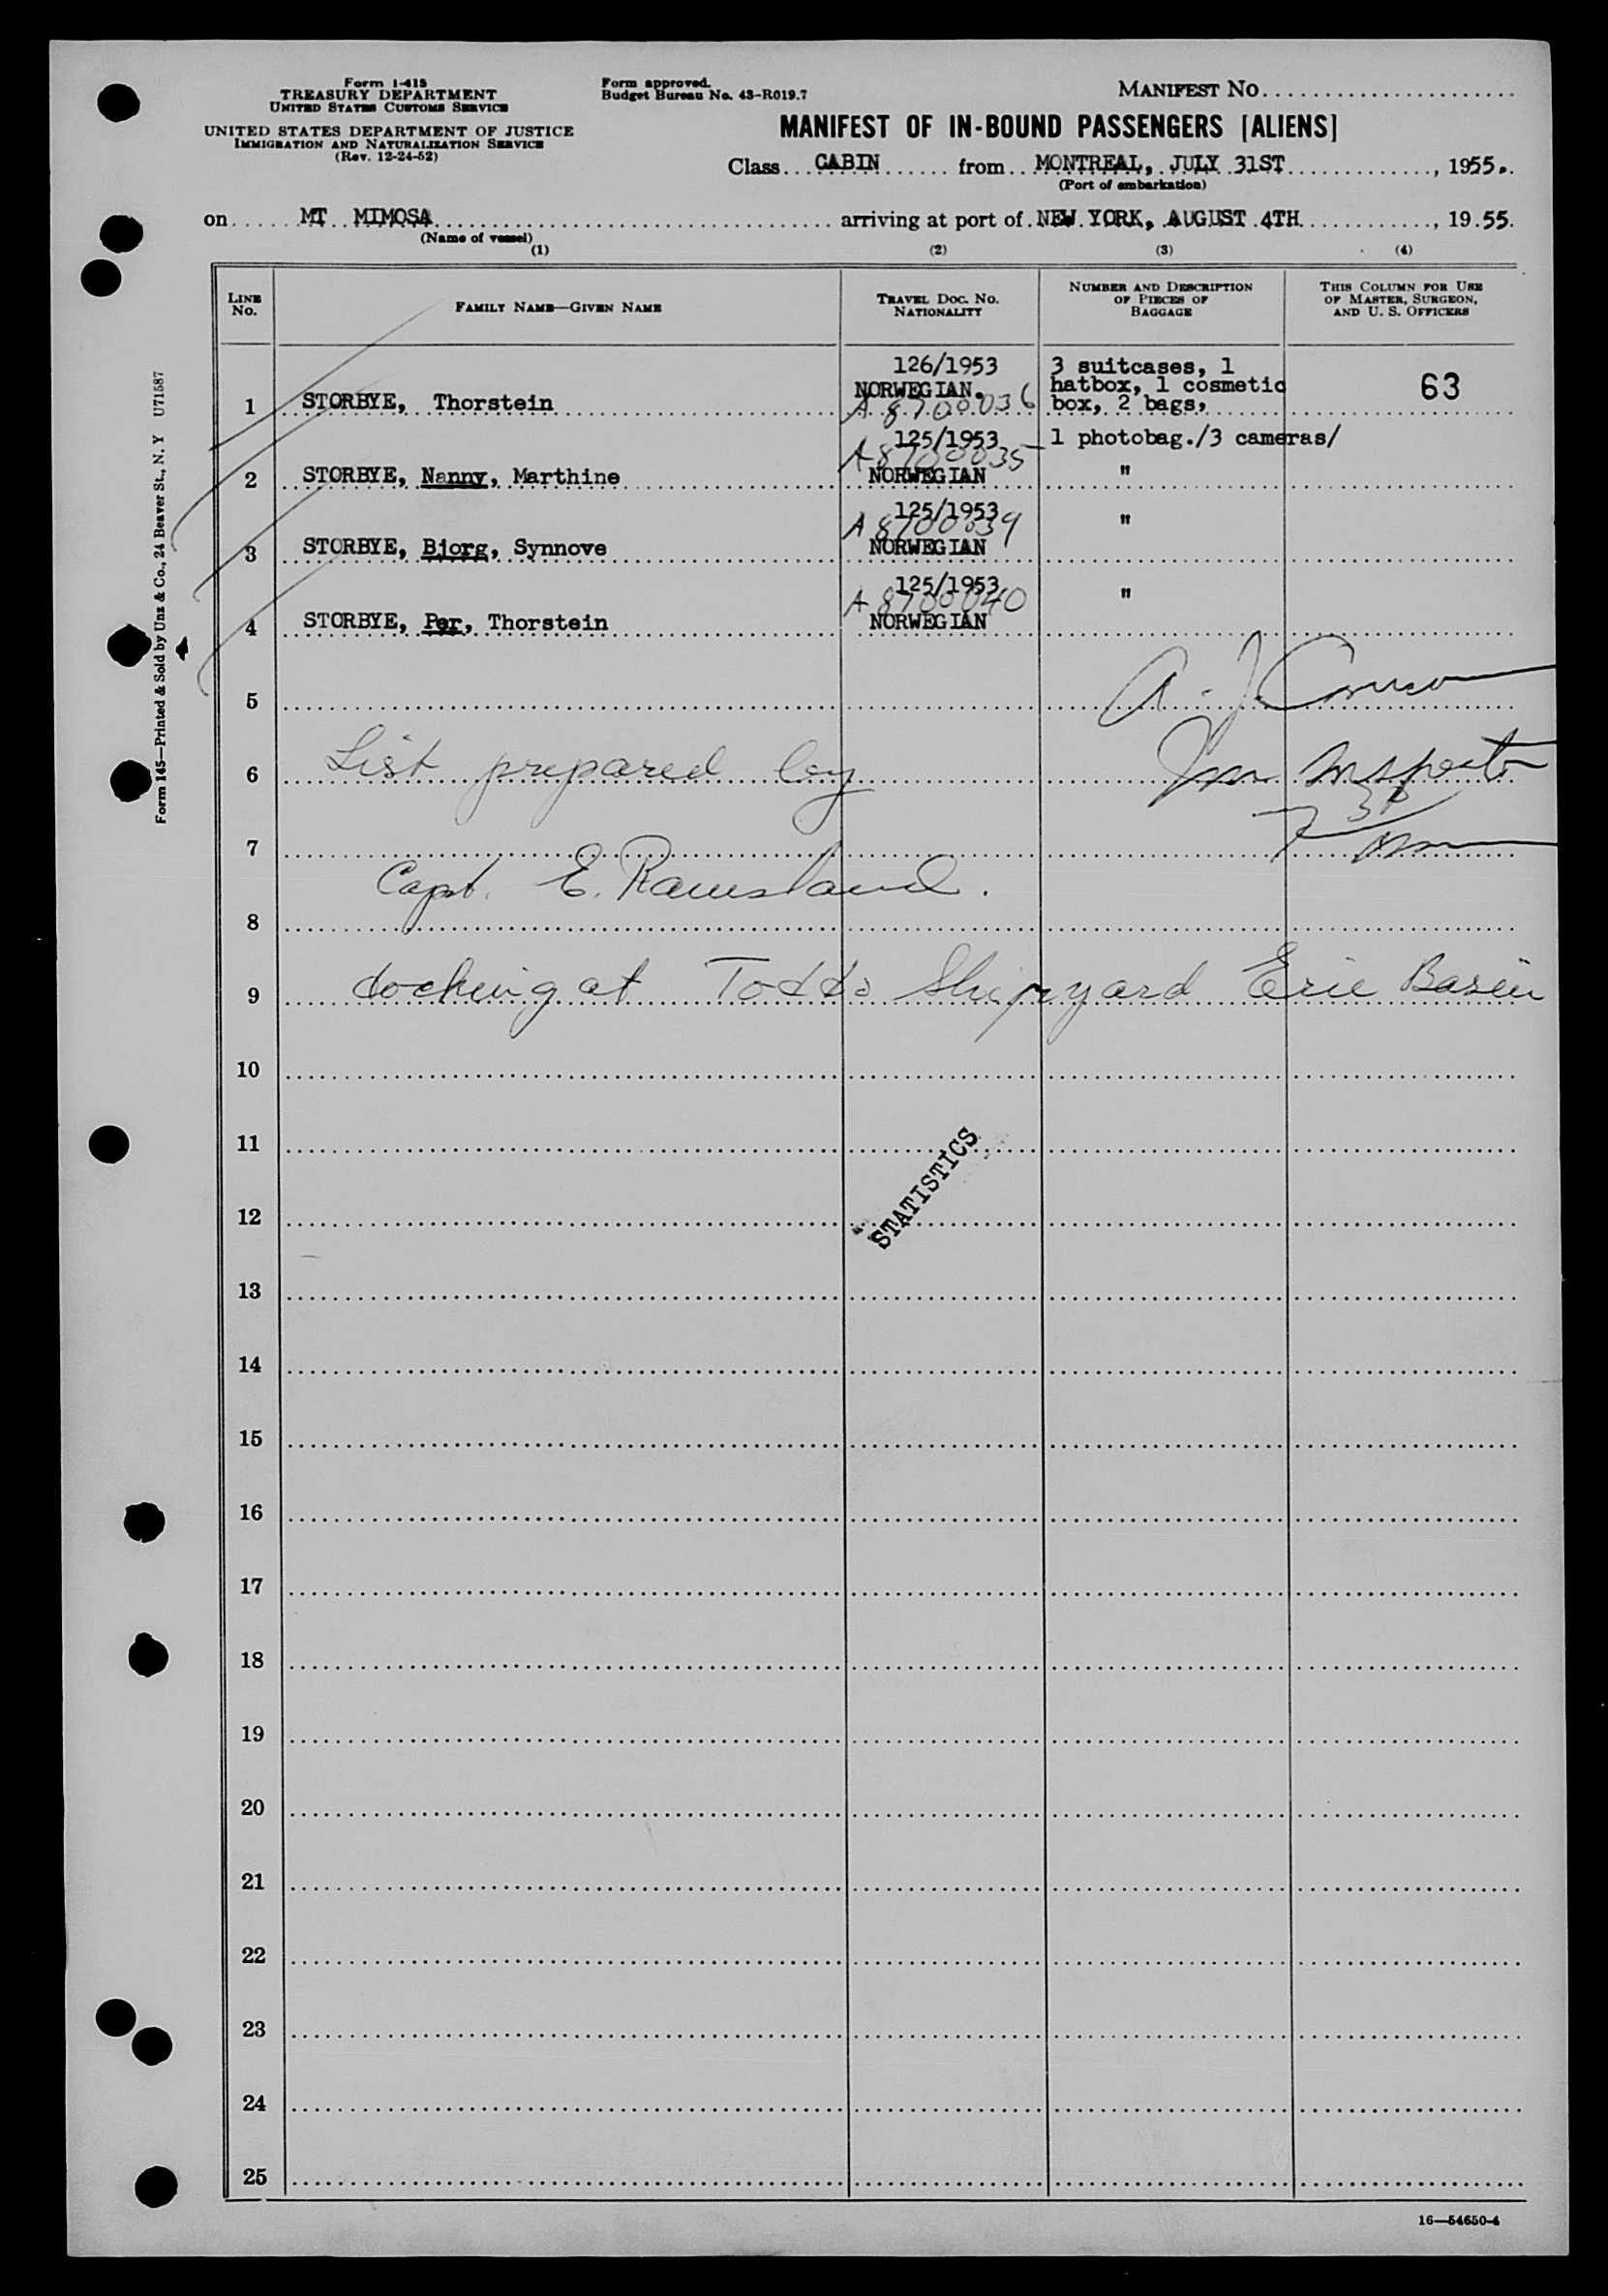 Form I-415
TREASURY DEPARTMENT
UNITED STATES CUSTOMS SERVICE
UNITED STATES DEPARTMENT OF JUSTICE
IMMIGRATION AND NATURALIZATION SERVICE
(Rev. 12-24-52)
Form approved.
Budget Bureau No. 43-R019.7
MANIFEST NO.
MANIFEST OF IN-BOUND PASSENGERS [ALIENS]
Class CABIN from MONTREAL, JULY 31ST, 1955.
(Port of embarkation)
on MT MIMOSA arriving at port of NEW YORK, AUGUST 4TH, 19 55.
(Name of vessel)
(1) (2) (3) (4)
LINE NO.
FAMILY NAME—GIVEN NAME
TRAVEL DOC. NO. NATIONALITY
NUMBER AND DESCRIPTION OF PIECES OF BAGGAGE
THIS COLUMN FOR USE OF MASTER, SURGEON, AND U. S. OFFICERS
126/1953 3 suitcases, 1
NORWEGIAN. hatbox, 1 cosmetic 63
1 STORBYE, Thorstein A 8700036 box, 2 bags,
125/1953 1 photobag./3 cameras/
A 8700035
2 STORBYE, Nanny, Marthine NORWEGIAN "
125/1953 "
A 8700039
3 STORBYE, Bjorg, Synnove NORWEGIAN
125/1953 "
A 8700040
4 STORBYE, Per, Thorstein NORWEGIAN
5 A. J.
6 List prepared by Imm Inspector
7
Capt. E. Ramsland.
8
9 docking at Todds Shipyard Erie Basin
10
11
STATISTICS
12
13
14
15
16
17
18
19
20
21
22
23
24
25
16—54650-4
Form 145—Printed & Sold by Unz & Co., 24 Beaver St., N. Y U71587